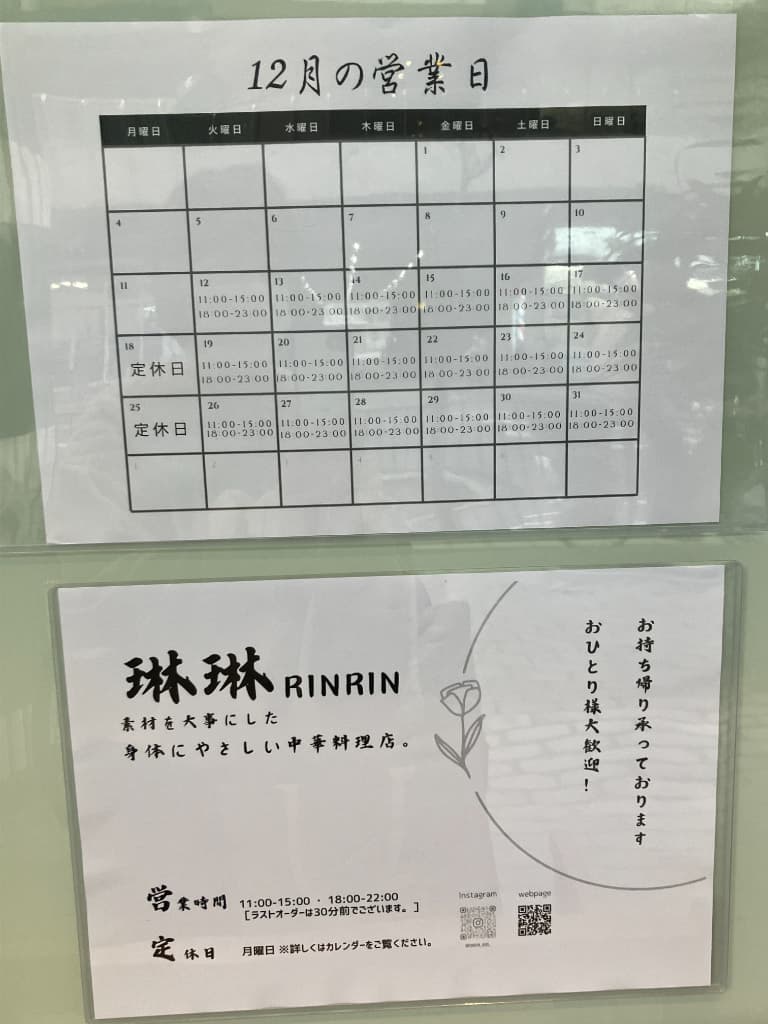 12月の営業日
月曜日 火曜日 水曜日 木曜日 金曜日 土曜日 日曜日
1 2 3
4 5 6 7 8 9 10
11 12 13 14 15 16 17
11:00-15:00 11:00-15:00 11:00-15:00 11:00-15:00 11:00-15:00 11:00-15:00
18:00-23:00 18:00-23:00 18:00-23:00 18:00-23:00 18:00-23:00 18:00-23:00
18 19 20 21 22 23 24
定休日 11:00-15:00 11:00-15:00 11:00-15:00 11:00-15:00 11:00-15:00 11:00-15:00
18:00-23:00 18:00-23:00 18:00-23:00 18:00-23:00 18:00-23:00 18:00-23:00
25 26 27 28 29 30 31
定休日 11:00-15:00 11:00-15:00 11:00-15:00 11:00-15:00 11:00-15:00 11:00-15:00
18:00-23:00 18:00-23:00 18:00-23:00 18:00-23:00 18:00-23:00 18:00-23:00
1 2 3 4 5 6
お持ち帰り承っております
おひとり様大歓迎!
琳琳 RINRIN
素材を大事にした
身体にやさしい中華料理店。
営業時間 11:00-15:00 ・ 18:00-22:00
[ラストオーダーは30分前でございます。 ]
定休日 月曜日 ※詳しくはカレンダーをご覧ください。
Instagram
webpage